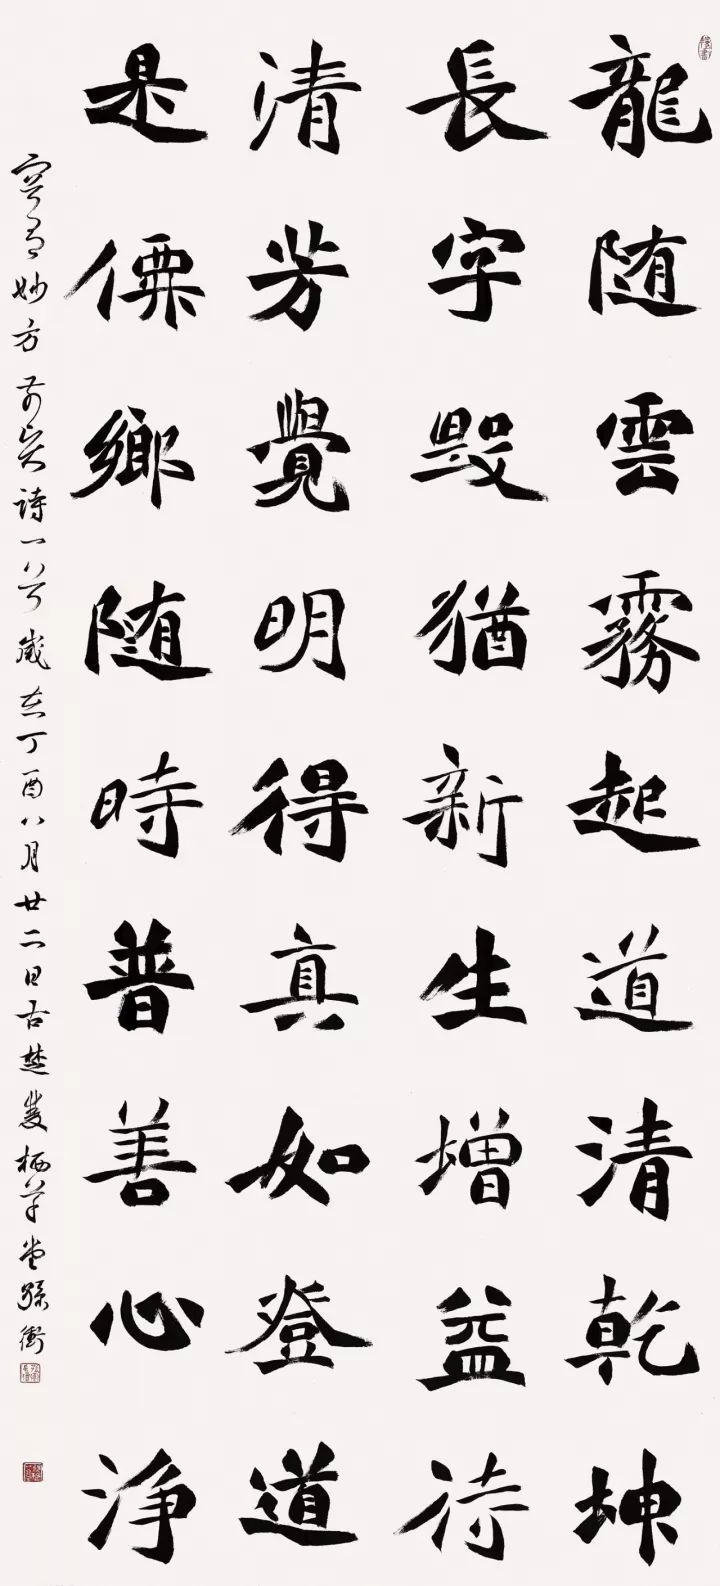 龍随雲霧起道清乾坤
長字毀猶新生增益待
清芳覺明得真如登道
是僊鄉随時普善心淨
有妙方 詩一首 歲在丁酉八月廿二日古楚 栖草堂孫